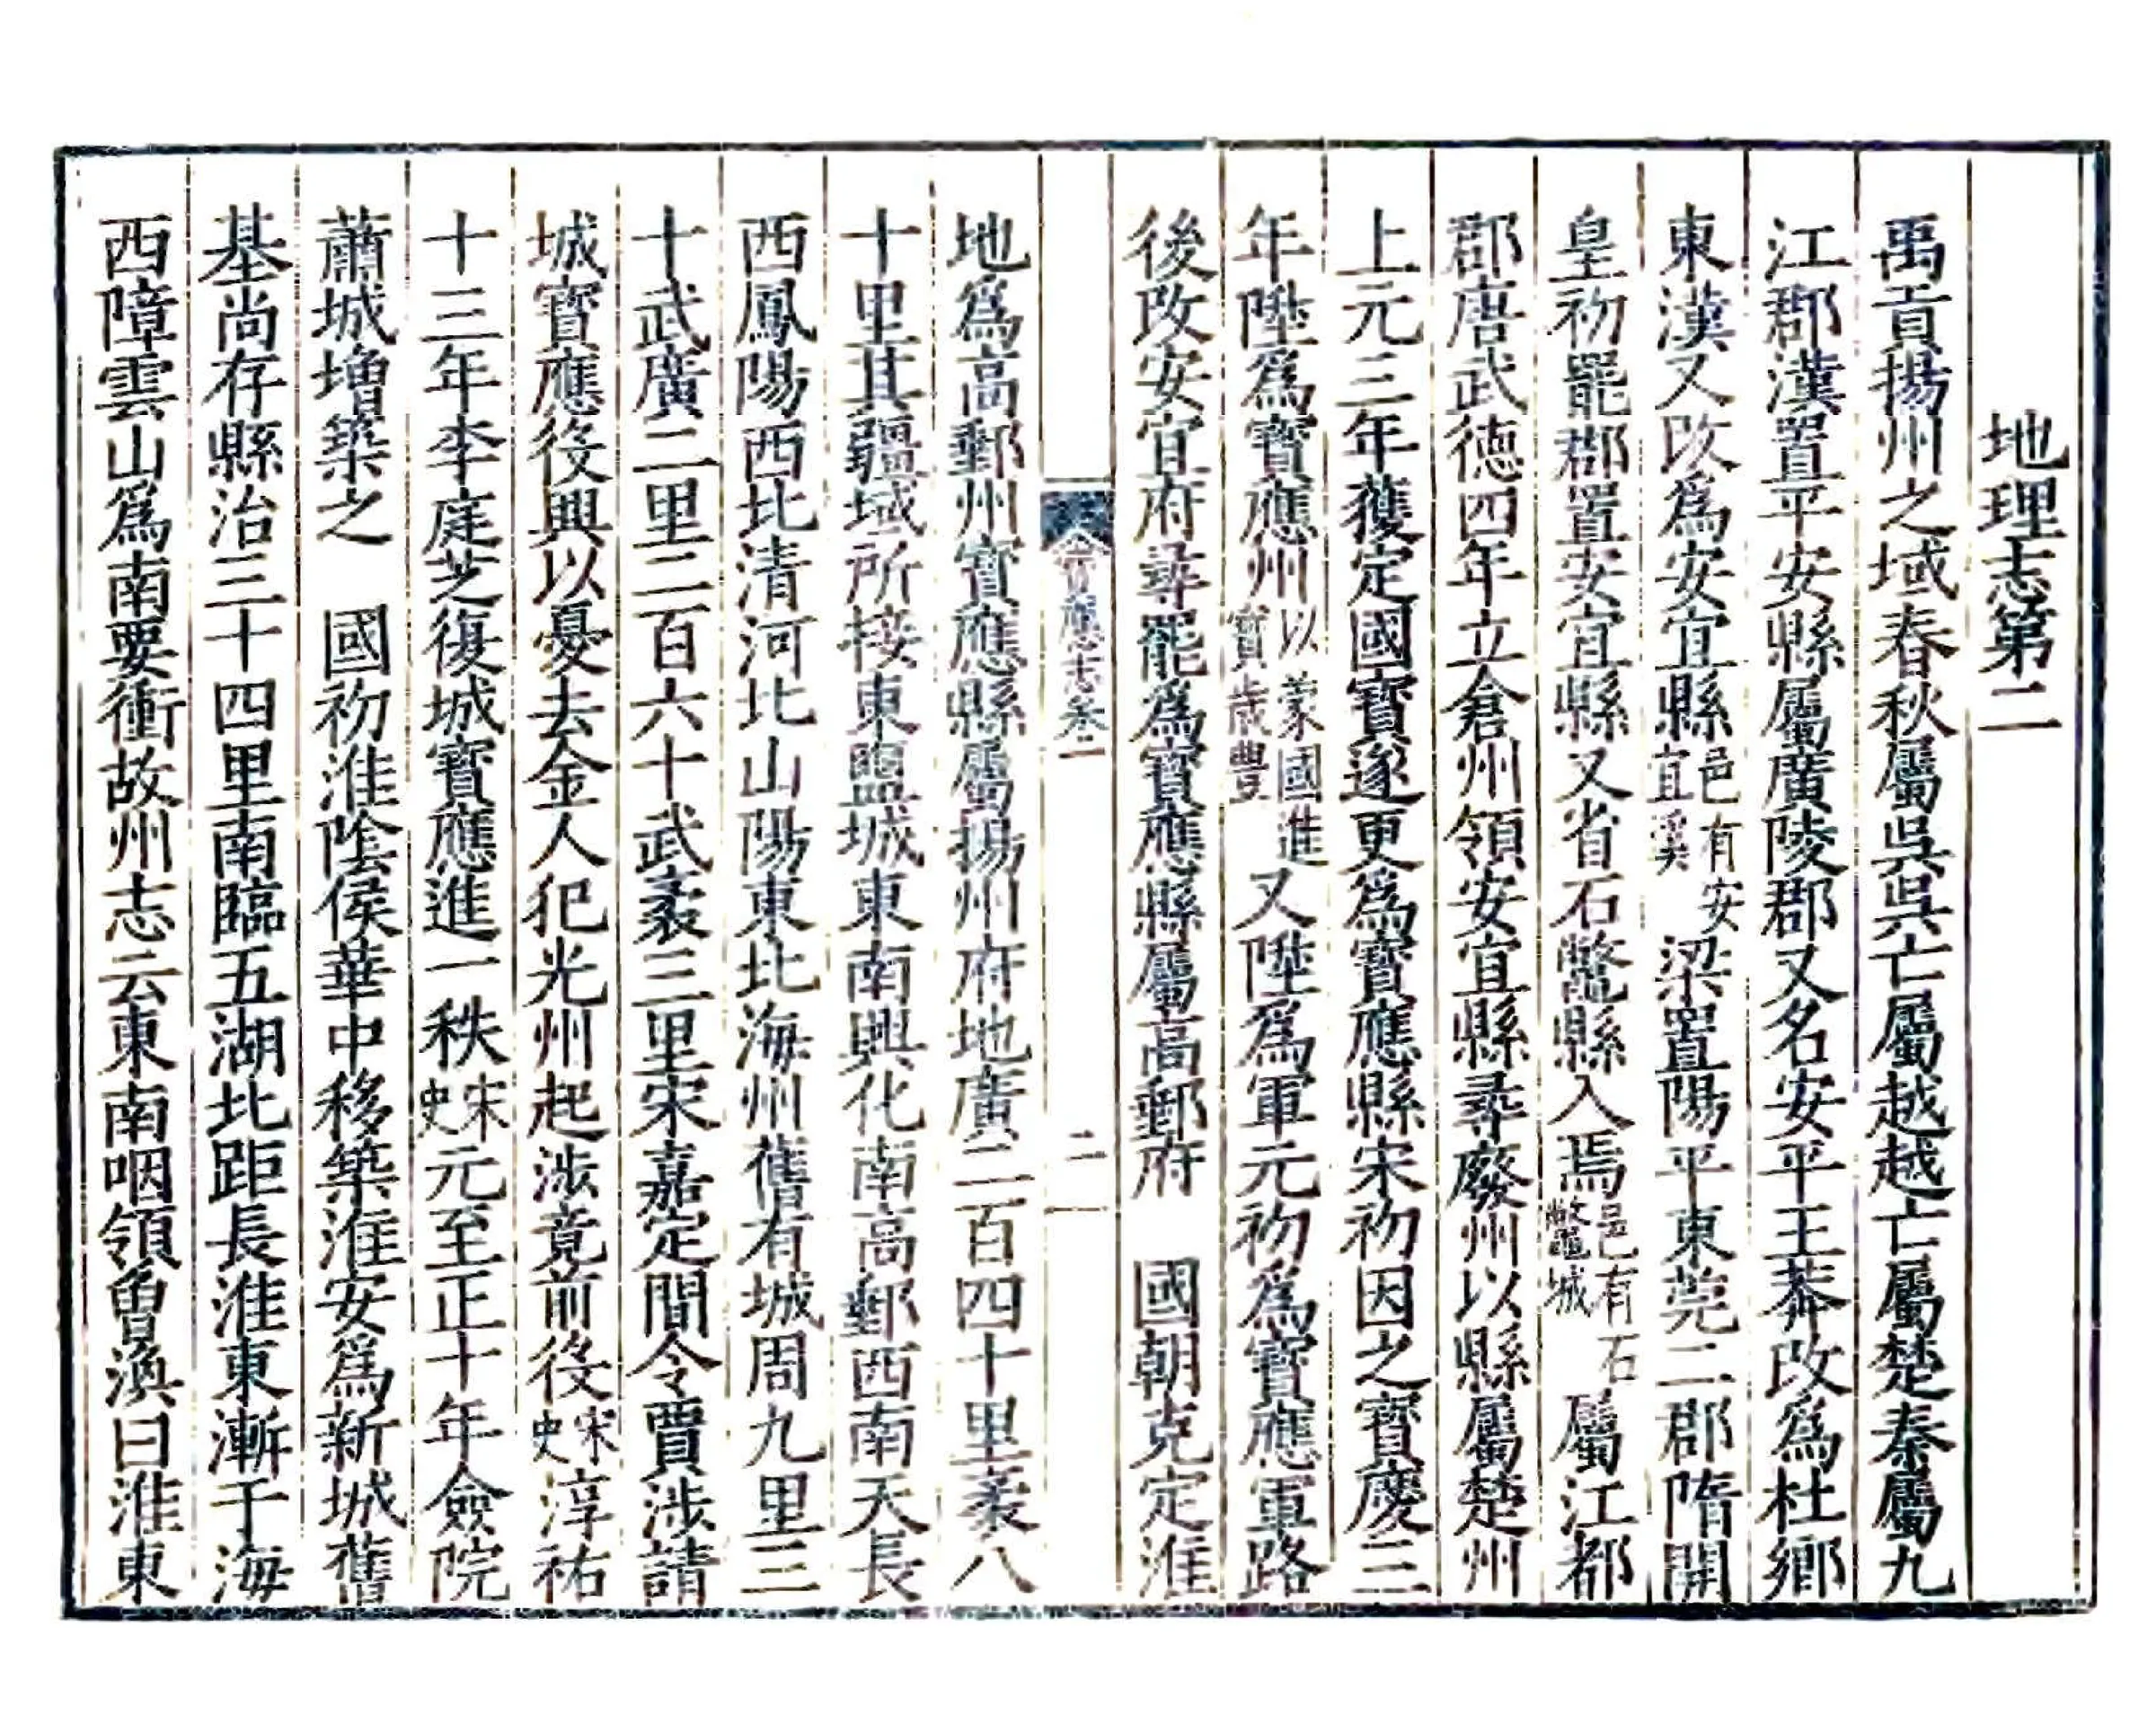 地理志第二
禹貢揚州之域春秋屬吳吳亡屬越越亡屬楚秦屬九
江郡漢置平安縣屬廣陵郡又名安平王莽改爲杜鄉
東漢又改爲安宜縣邑有安宜溪梁置陽平東莞二郡隋開
皇初罷郡置安宜縣又省石鼈縣入焉邑有石鼈城屬江都
郡唐武德四年立倉州領安宜縣尋廢州以縣屬楚州
上元三年獲定國寶遂更爲寶應縣宋初因之寶慶三
年陞爲寶應州以蒙國進寶歲豐又陞爲軍元初爲寶應軍路
後改安宜府尋罷爲寶應縣屬高郵府 國朝克定淮
寶應志卷一 二
地爲高郵州寶應縣屬揚州府地廣二百四十里袤八
十里其疆域所接東鹽城東南興化南高郵西南天長
西鳳陽西北清河北山陽東北海州舊有城周九里三
十武廣二里二百六十武袤三里宋嘉定間令賈涉請
城寶應役興以憂去金人犯光州起涉竟前役宋史淳祐
十三年李庭芝復城寶應進一秩宋史元至正十年僉院
蕭城增築之 國初淮陰侯華中移築淮安爲新城舊
基尚存縣治三十四里南臨五湖北距長淮東漸于海
西障雲山爲南要衝故州志云東南咽領魯渙曰淮東